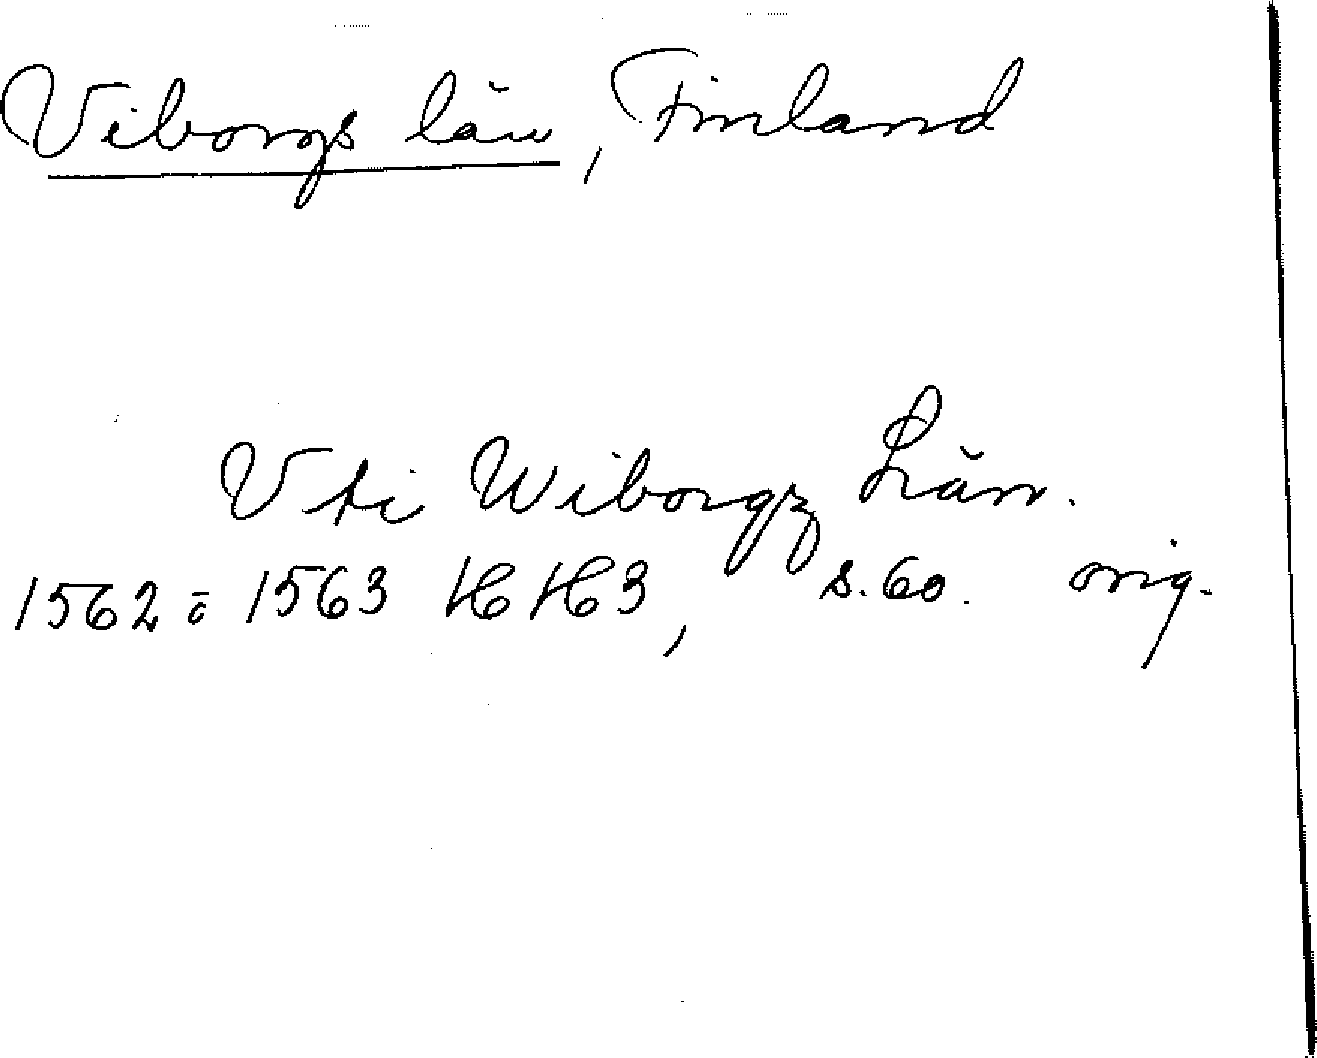 Viborgs län, Finland
Vti Wiborgz Län.
1562 ō 1563 HH3, s. 60. orig.